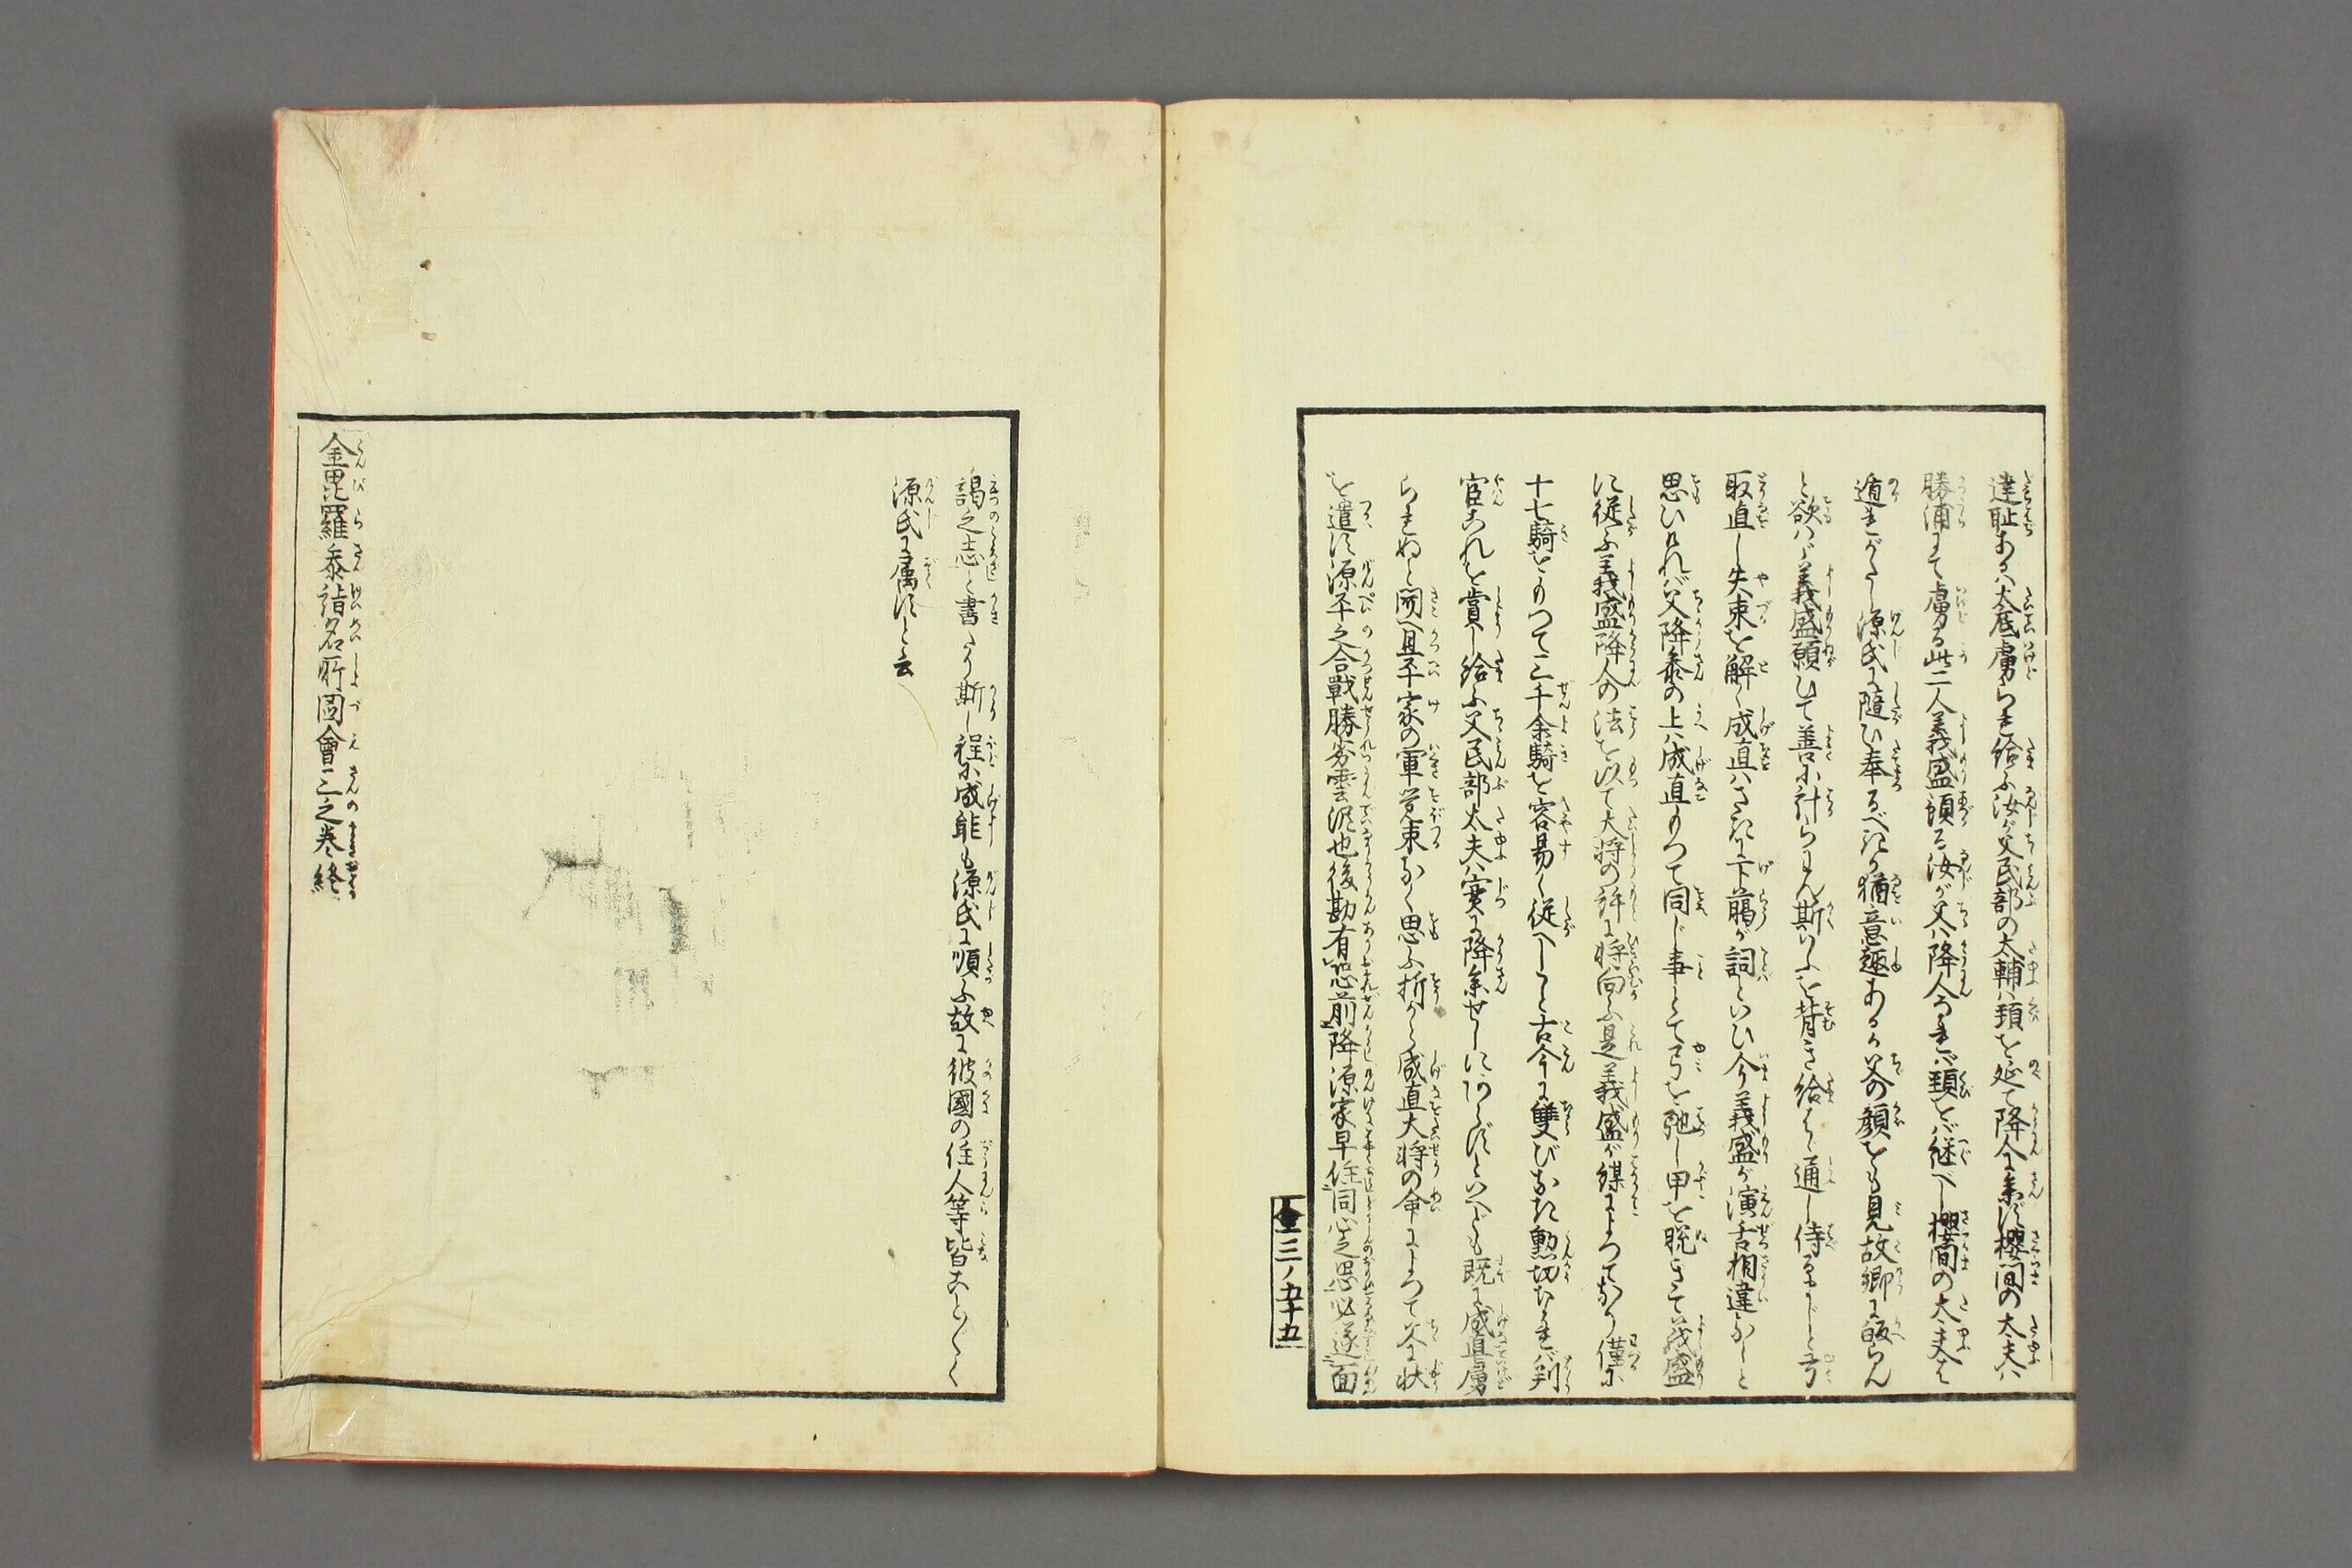 達恥あり大底虜られ給ふ汝が父民部の太輔は頚を延て降人に参ず櫻間の太夫は
勝浦にて虜る此二人義盛預る汝が父は降人なれば頚をば継べし櫻間の太夫は
遁れがたし源氏に隨ひ奉るべきか猶意趣あるか父の顔をも見故郷に皈らん
と欲はゞ義盛願ひて善に計らはん斯いふを背き給はゞ通し侍るまじと弓
取直し矢束を解く成直はさきに下﨟が詞といひ今の義盛が演舌相違なしと
思ひければ父降参の上は成直とつて同じ事とて弓を弛し甲を脱ぎて義盛
に従ふ義盛降人の法を以て大将の許に将向ふ是義盛が謀によつてなり僅に
十七騎をもつて三千余騎を容易く従へしこと古今に雙びなき勲功なれば判
官これを賞し給ふ父民部太夫は実に降参せしにあらずといへども既に成直虜
られぬと聞へ且平家の軍覚束なく思ふ折から成直大将の命によつて父に状
を遣す源平之合戦勝劣雲泥也後勘有恐前降源家早任同心之思必遂面
謁之志と書たり斯し程に成能も源氏に順ふ故に彼國の住人等皆こと〴〵く
源氏に属すと云
金毘羅参詣名所圖會三之巻終
金三ノ五十五